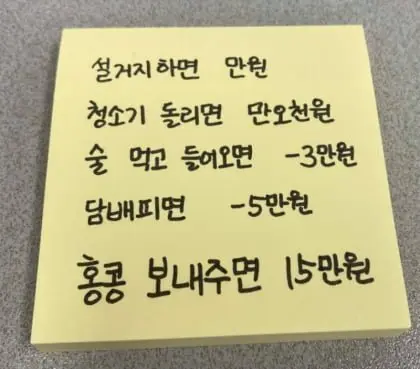 설거지하면 만원
청소기 돌리면 만오천원
술 먹고 들어오면 -3만원
담배피면 -5만원
홍콩 보내주면 15만원